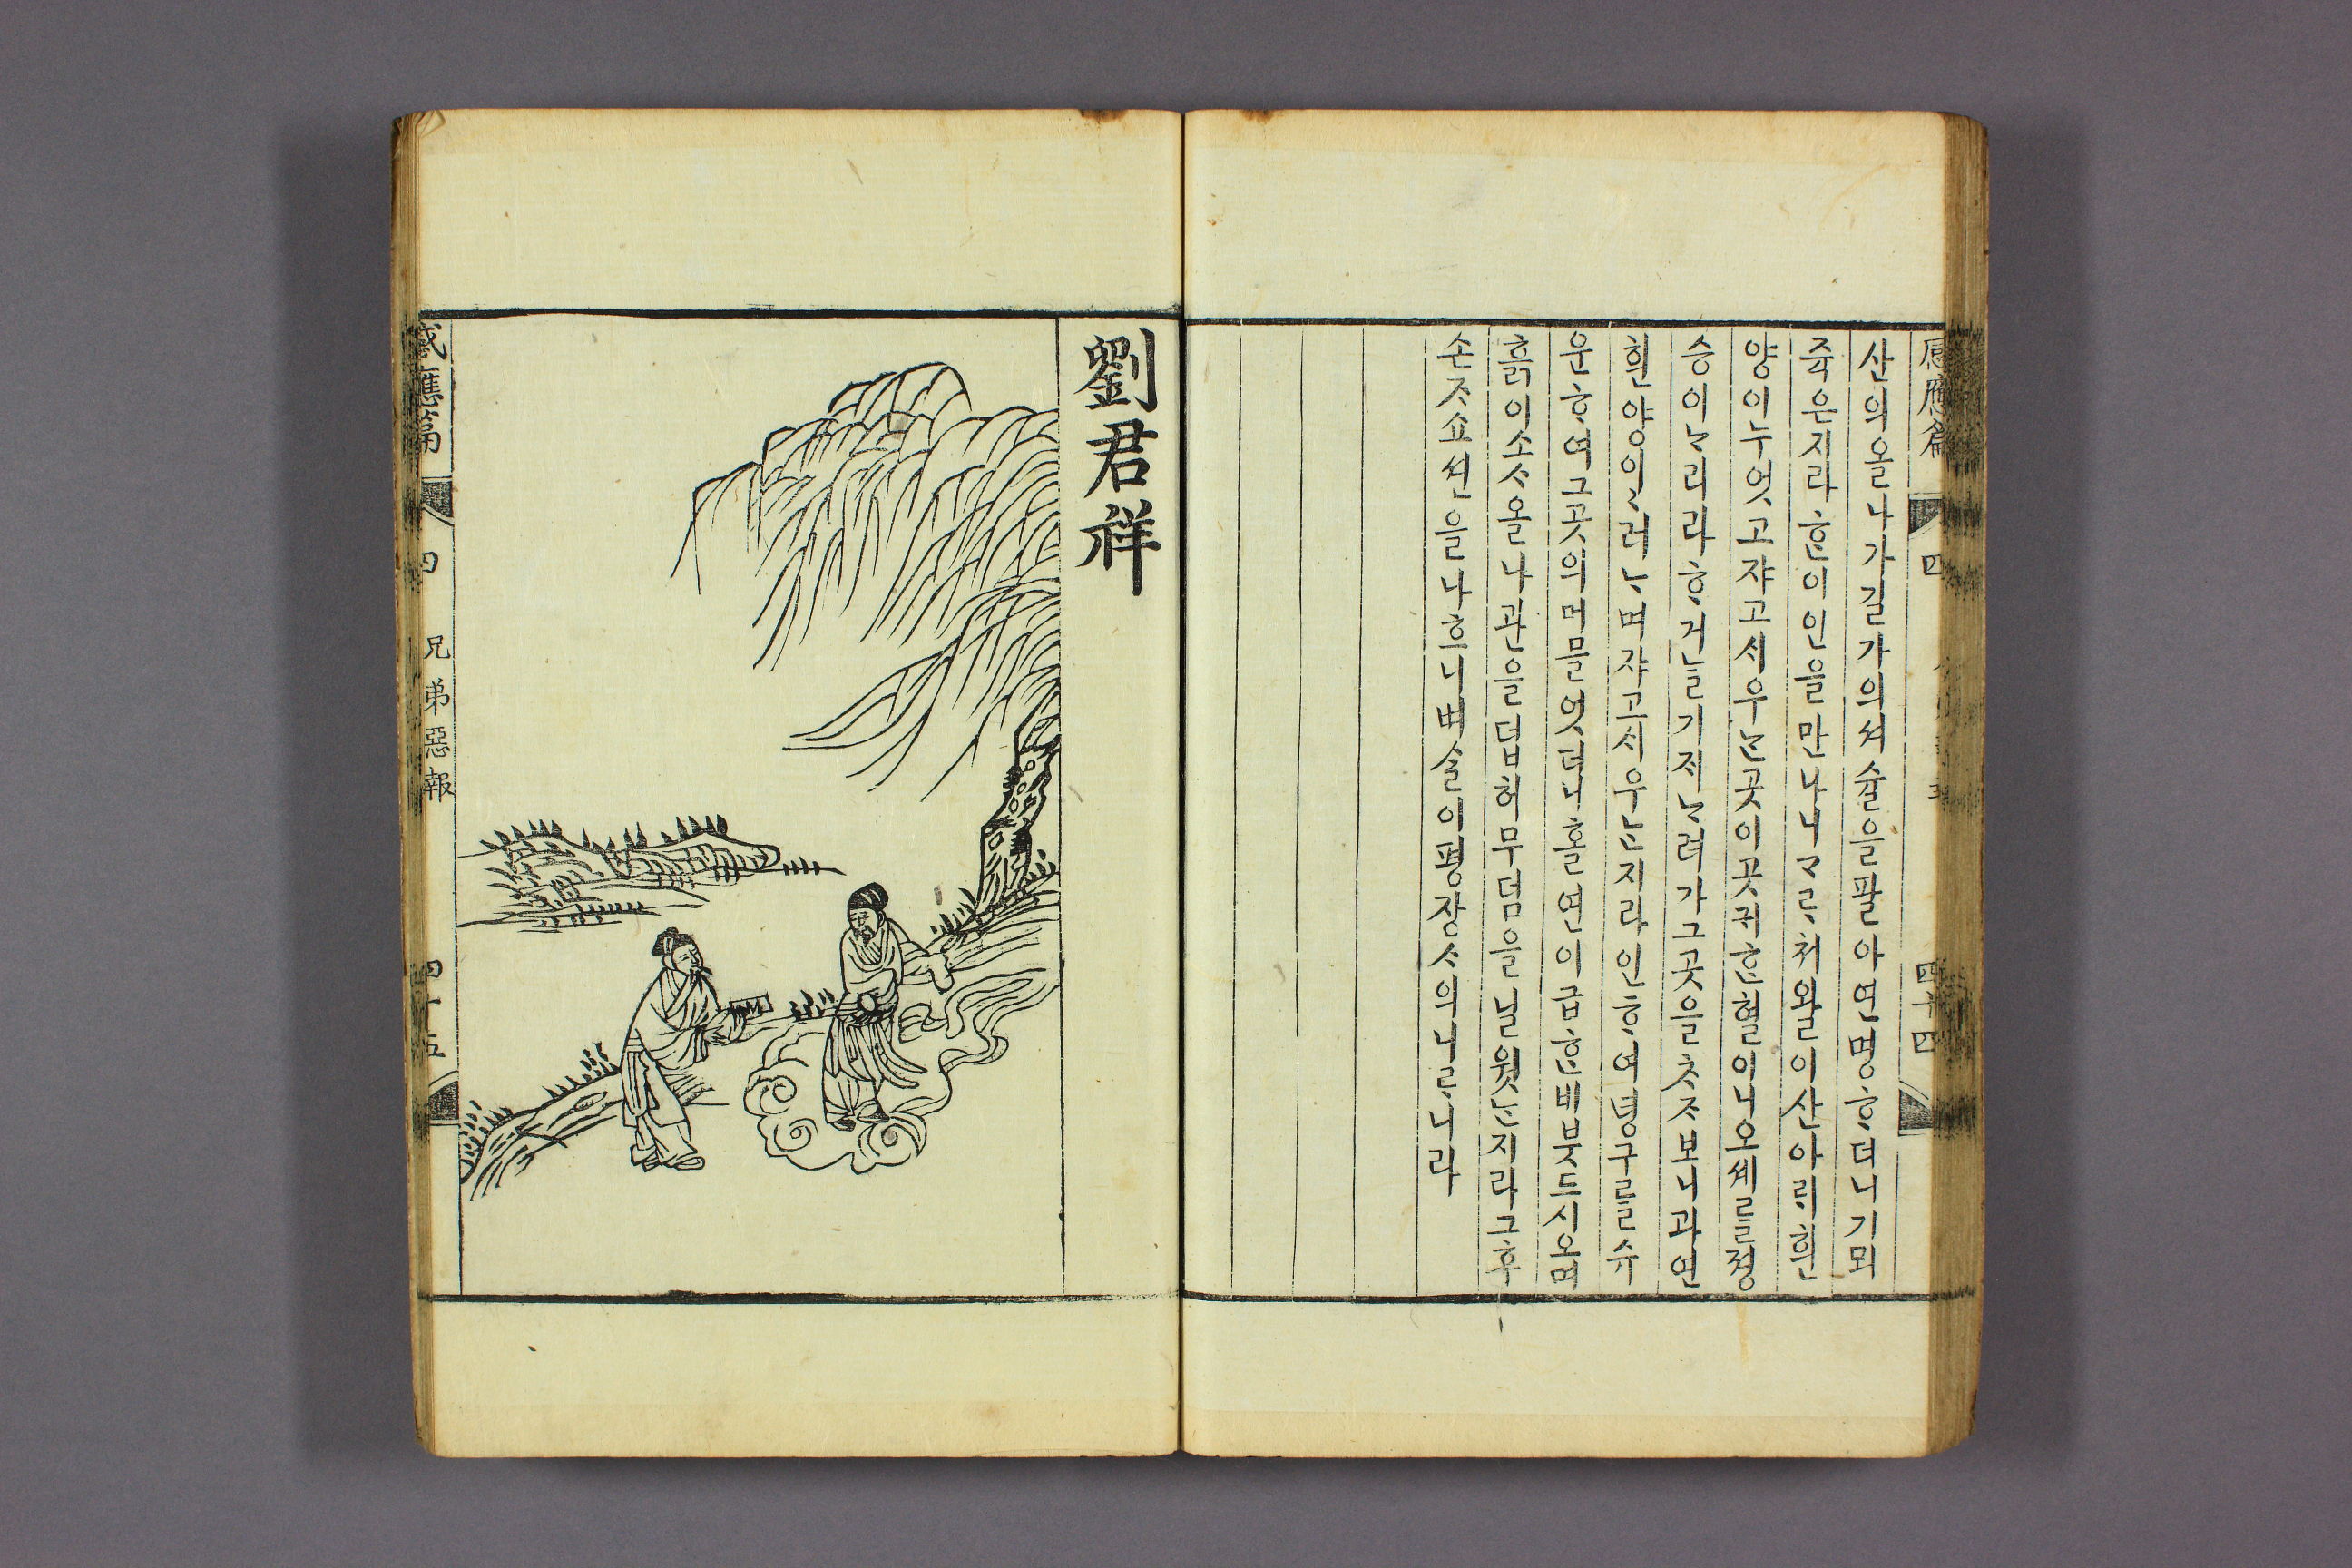 산의올나가길가의셔슐을팔아연명ᄒᆞ더니기뫼
쥭은지라ᄒᆞᆫ이인을만나니ᄀᆞᄅᆞ쳐왈이산아ᄅᆡ흰
양이누엇고쟈고셔우ᄂᆞᆫ곳이곳귀ᄒᆞᆫ혈이니오셰를졍
승이ᄂᆞ리라ᄒᆞ거늘기졔ᄂᆞ려가그곳을ᄎᆞᄌᆞ보니과연
흰양이ᄭᆡ러ᄂᆞ며쟈고셔우ᄂᆞᆫ지라인ᄒᆞ여녕구를슈
운ᄒᆞ여그곳의머믈엇더니홀연이급ᄒᆞᆫ배븟드시오며
흙이소ᄉᆞ올나관을덥허무덤을닐웟ᄂᆞᆫ지라그후
손ᄌᆞ쇼션을나흐니벼슬이평쟝ᄉᆞ의니르니라
感應篇 四 四十四
劉君祥
感應篇 四 兄弟惡報 四十五